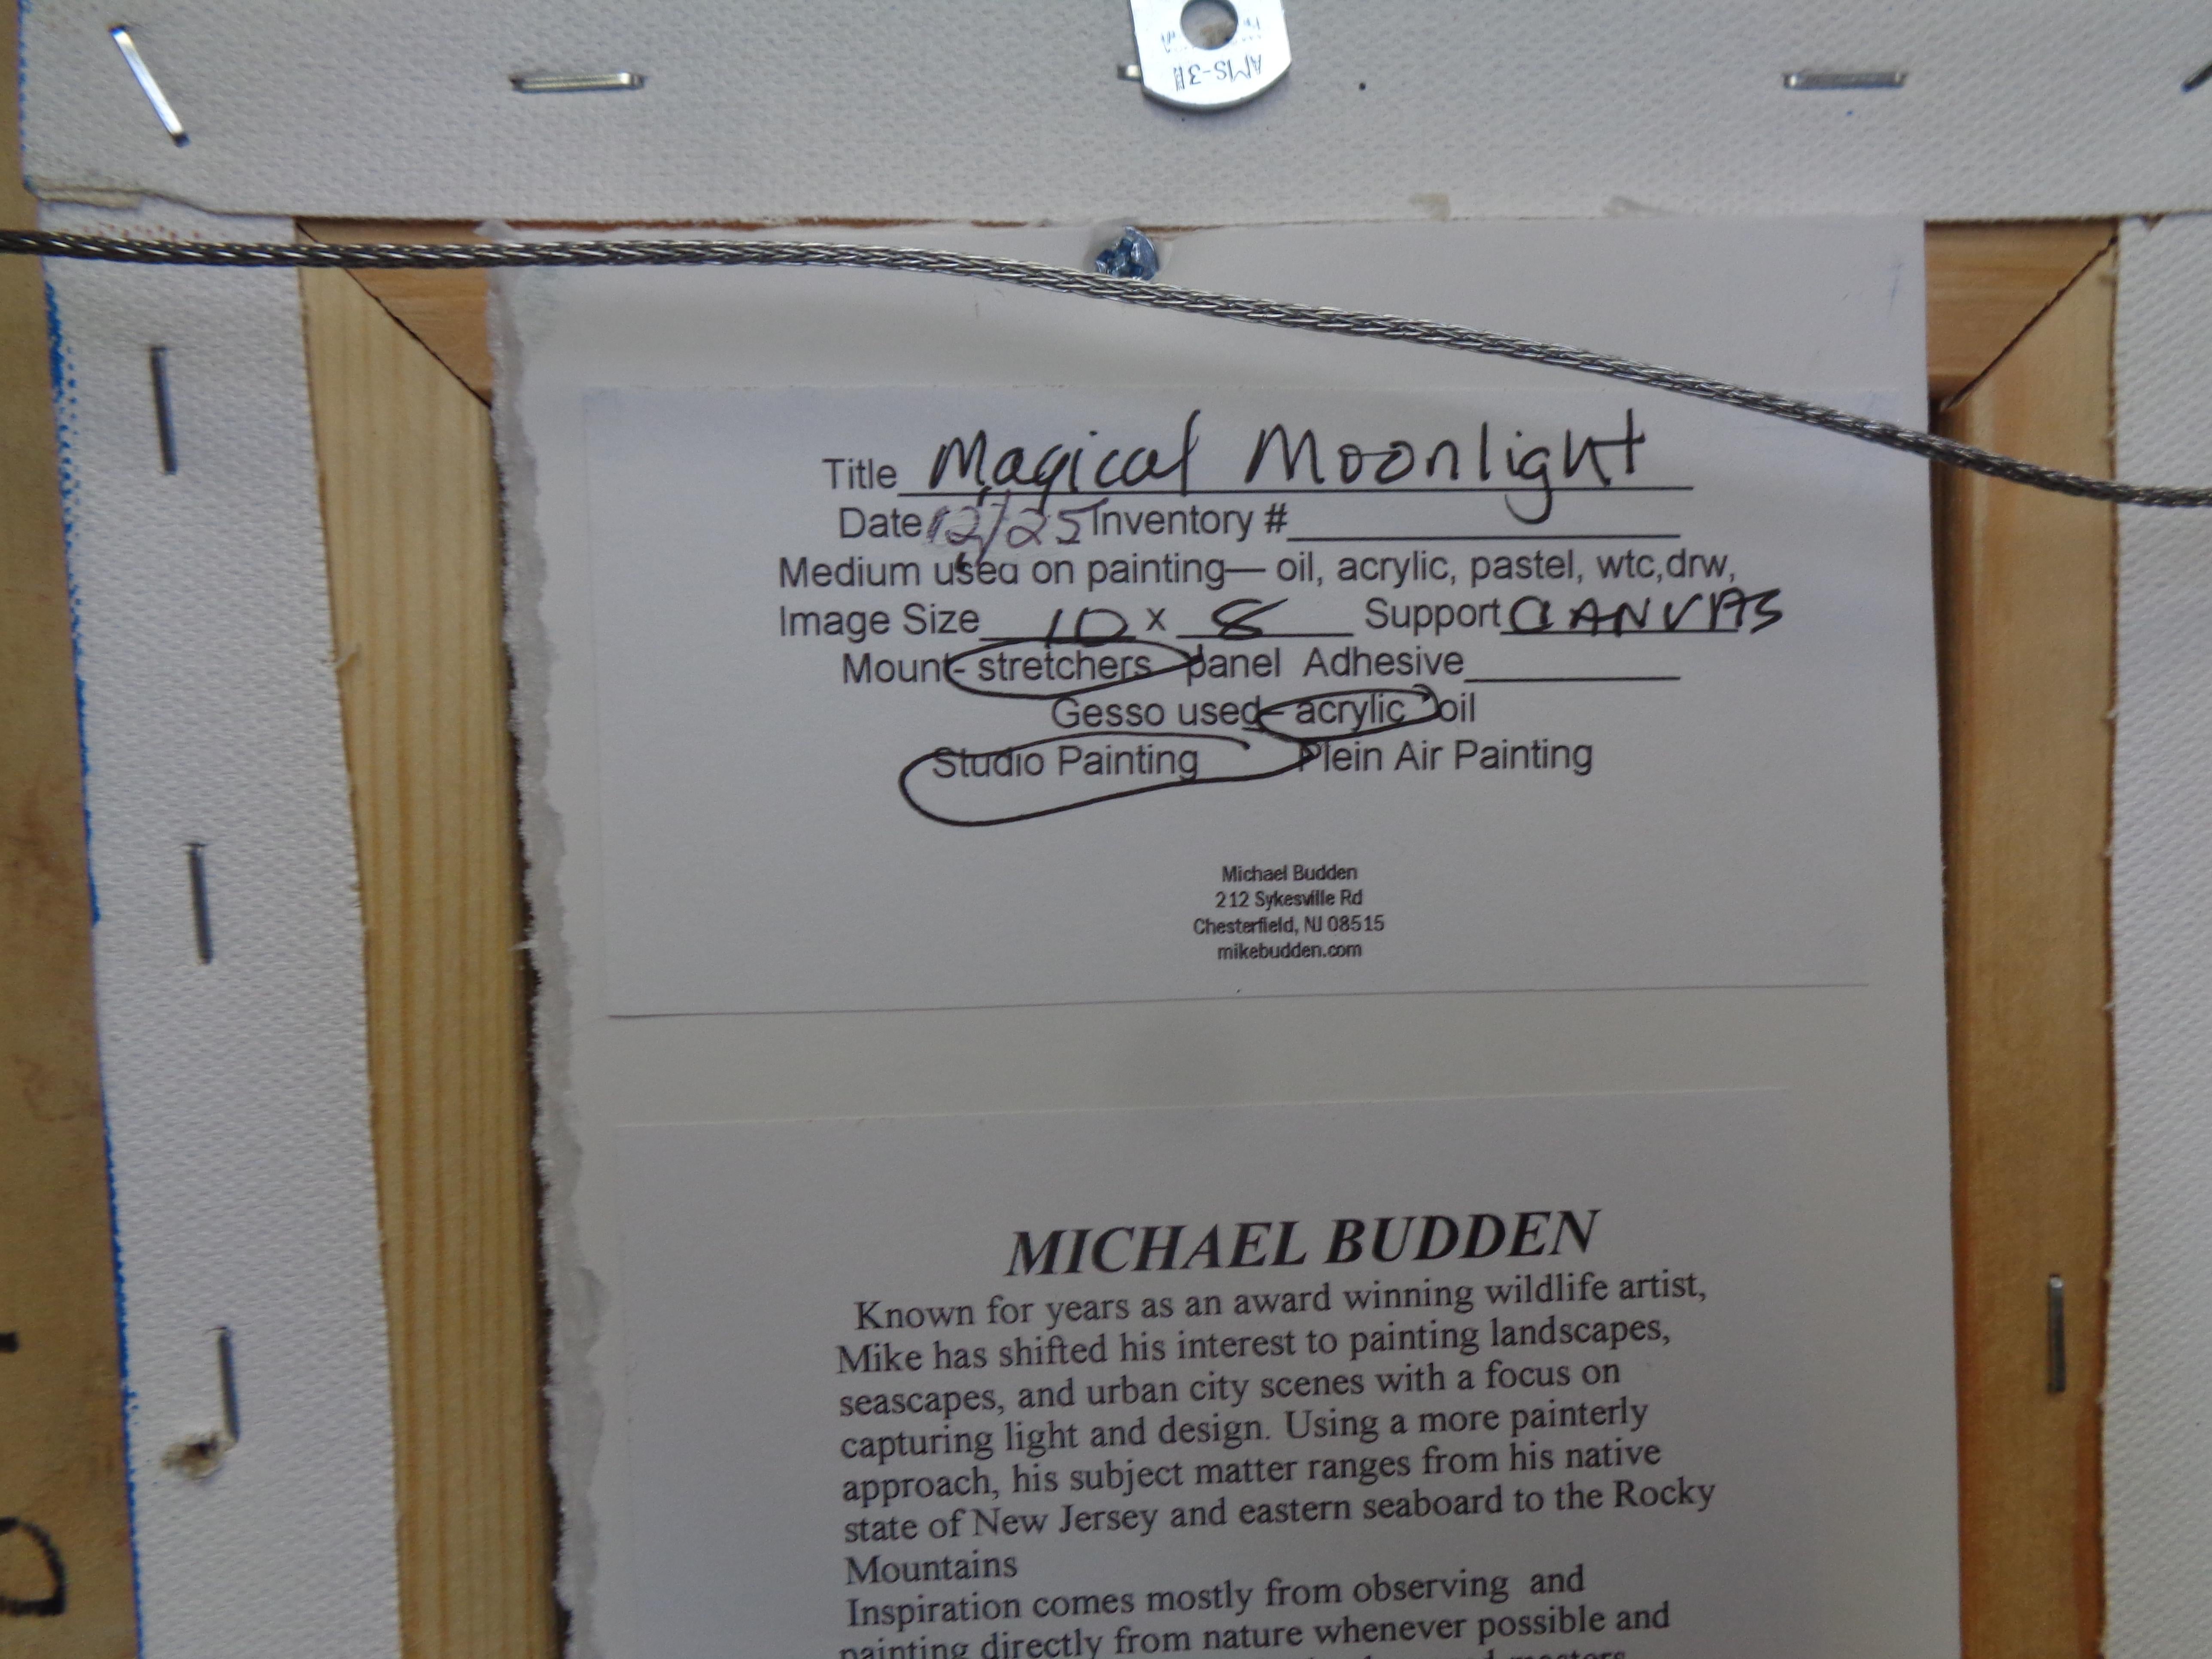 AMS-3H
Title Magical Moonlight
Date 12/25 Inventory #
Medium used on painting— oil, acrylic, pastel, wtc,drw,
Image Size 10 x 8 Support CANVAS
Mount- stretchers panel Adhesive
Gesso used- acrylic oil
Studio Painting Plein Air Painting
Michael Budden
212 Sykesville Rd
Chesterfield, NJ 08515
mikebudden.com
MICHAEL BUDDEN
Known for years as an award winning wildlife artist,
Mike has shifted his interest to painting landscapes,
seascapes, and urban city scenes with a focus on
capturing light and design. Using a more painterly
approach, his subject matter ranges from his native
state of New Jersey and eastern seaboard to the Rocky
Mountains
Inspiration comes mostly from observing and
painting directly from nature whenever possible and
masters